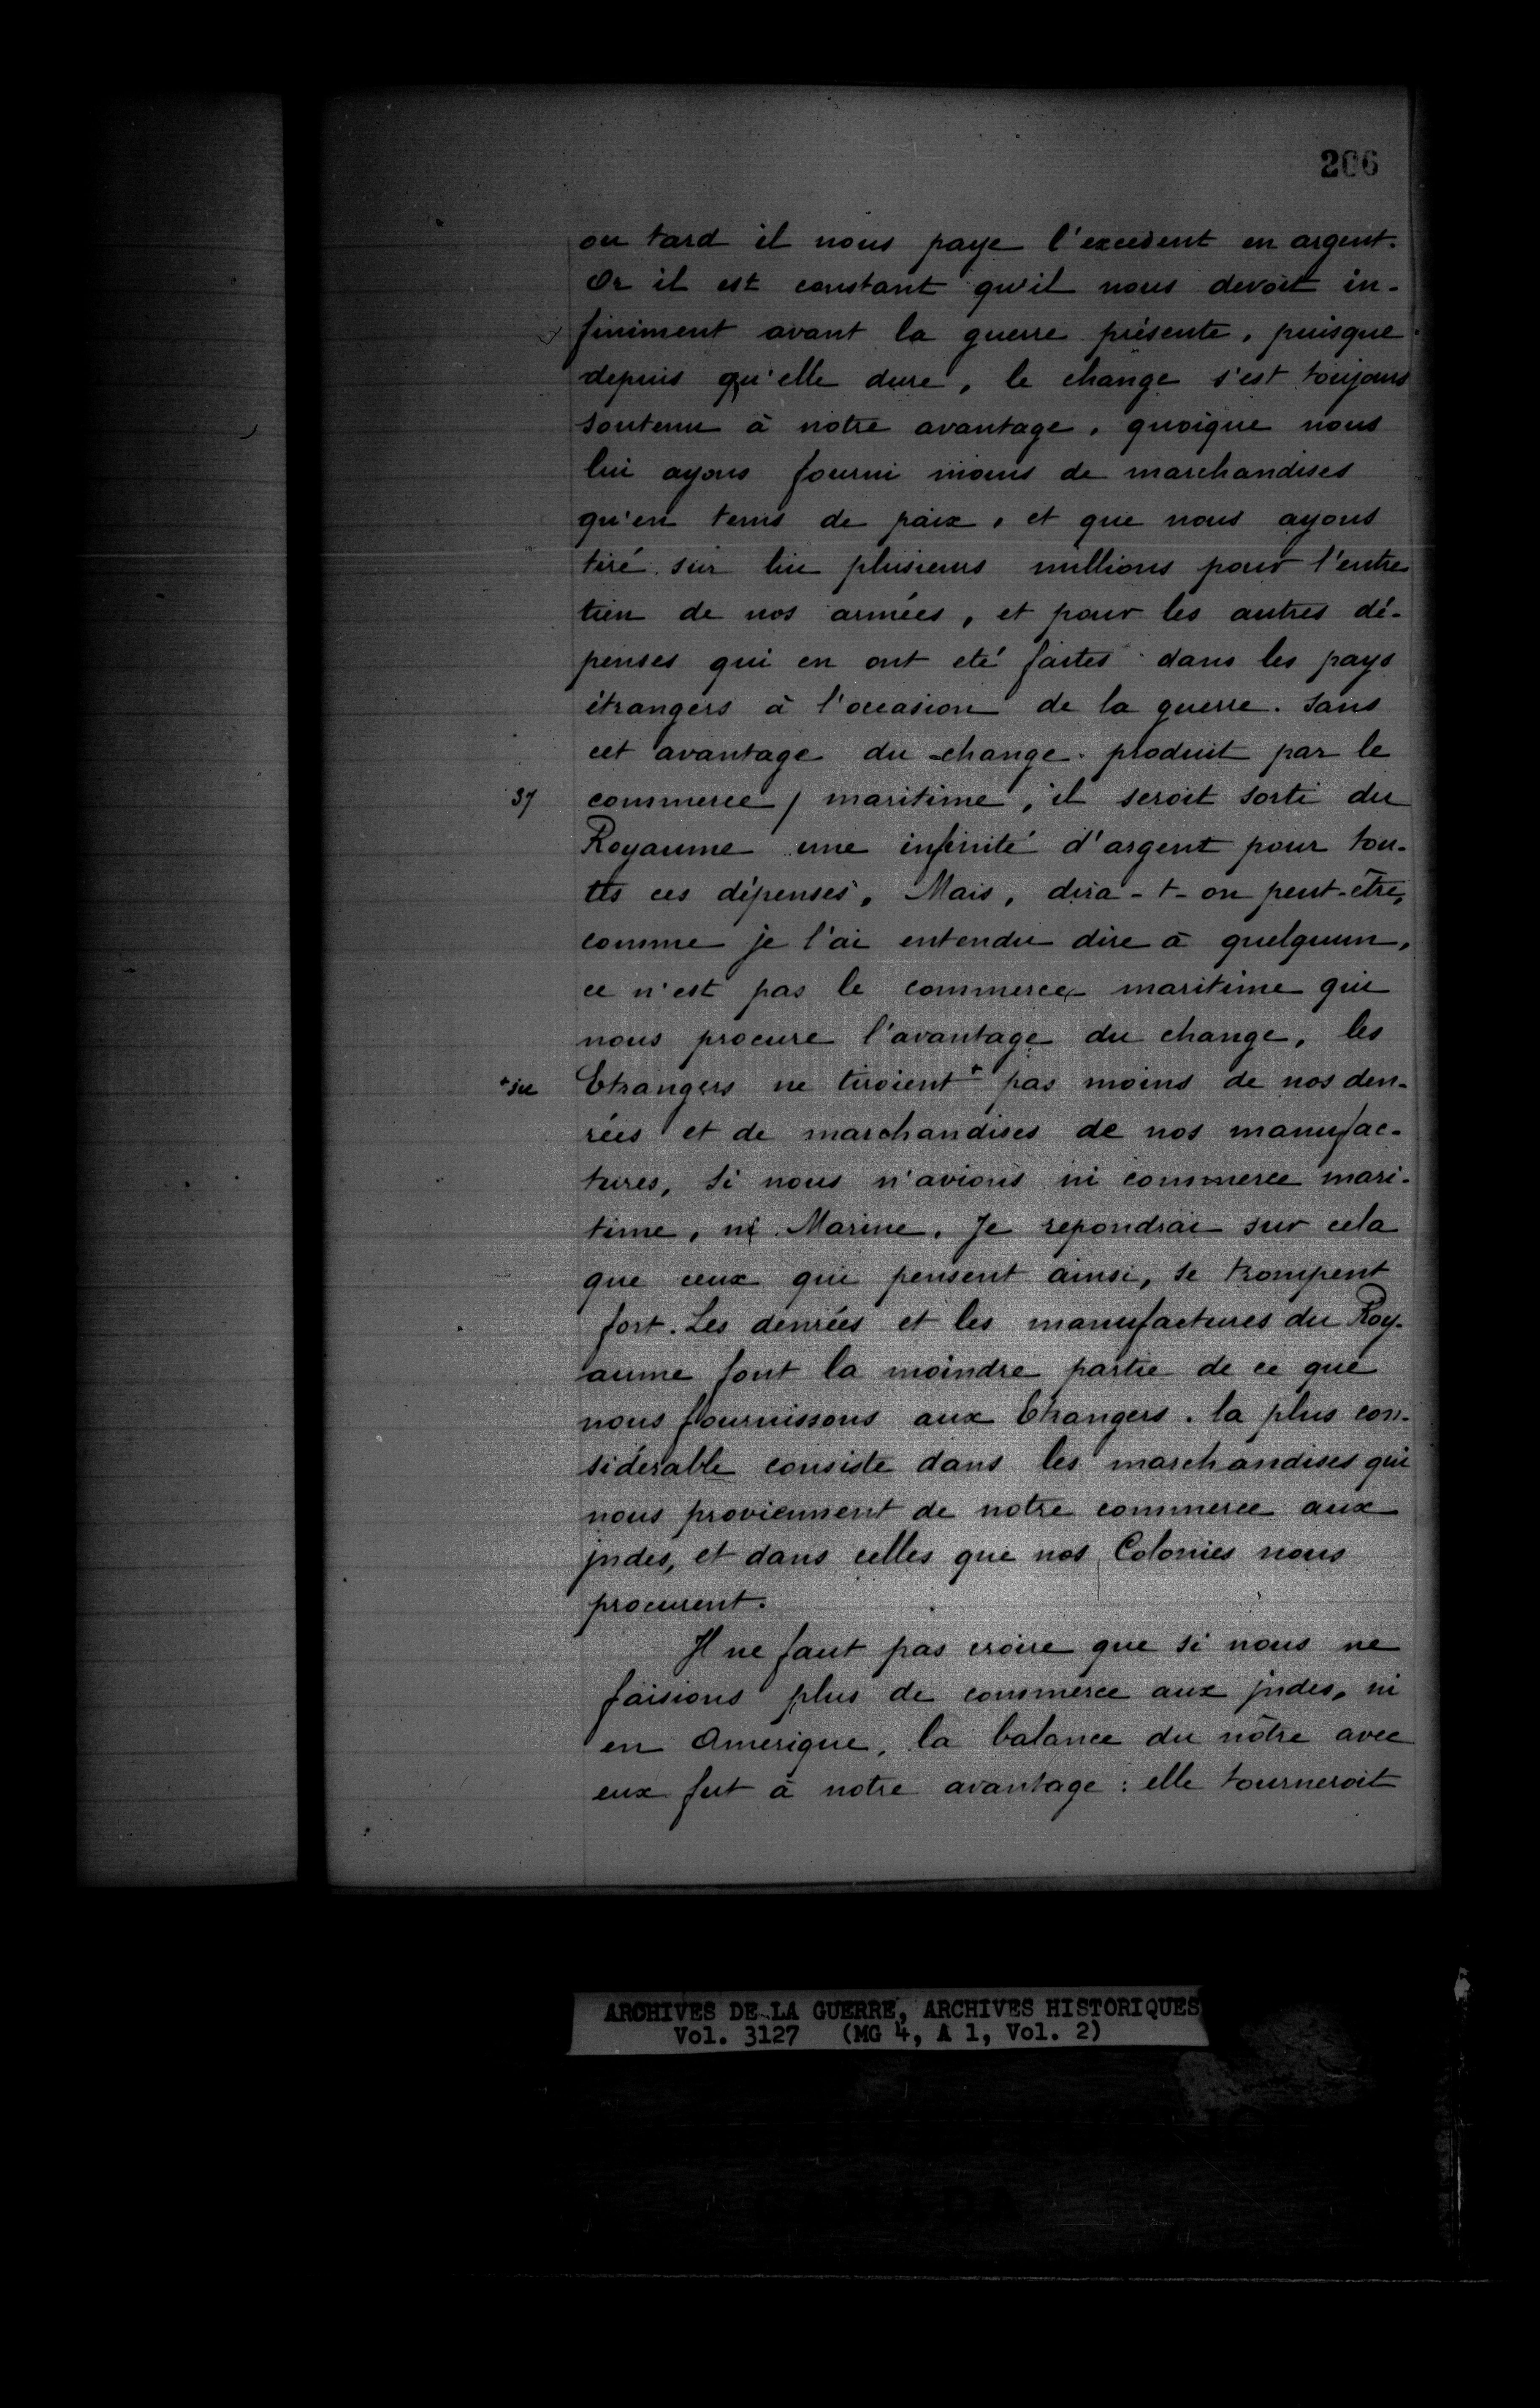 206
ou tard il nous paye l'excedent en argent.
Or il est constant qu'il nous devoit in-
finiment avant la guerre présente, puisque
depuis qu'elle dure, le change s'est toujours
soutenu à notre avantage, quoique nous
lui ayons fourni moins de marchandises
qu'en tems de paix, et que nous ayons
tiré sur lui plusieurs millions pour l'entre
tien de nos armées, et pour les autres dé-
penses qui en ont eté faites dans les pays
étrangers à l'occasion de la guerre. Sans
cet avantage du change produit par le
37 commerce / maritime, il seroit sorti du
Royaume une infinité d'argent pour tou-
tes ces dépenses. Mais, dira-t-on peut-être,
comme je l'ai entendu dire à quelquun,
ce n'est pas le commerce maritime qui
nous procure l'avantage du change, les
Etrangers ne tiroient + pas moins de nos den-
rées et de marchandises de nos manufac-
tures, si nous n'avions ni commerce mari-
time, ni Marine. Je repondrai sur cela
que ceux qui pensent ainsi, se trompent
fort. Les denrées et les manufactures du Roy-
aume font la moindre partie de ce que
nous fournissons aux Etrangers. la plus con-
sidérable consiste dans les marchandises qui
nous proviennent de notre commerce aux
jndes, et dans celles que nos Colonies nous
procurent.
Il ne faut pas croire que si nous ne
faisions plus de commerce aux jndes, ni
en Amérique, la balance du nôtre avec
eux fut à notre avantage : elle tourneroit
ARCHIVES DE LA GUERRE, ARCHIVES HISTORIQUES
Vol. 3127 (MG 4, A 1, Vol. 2)